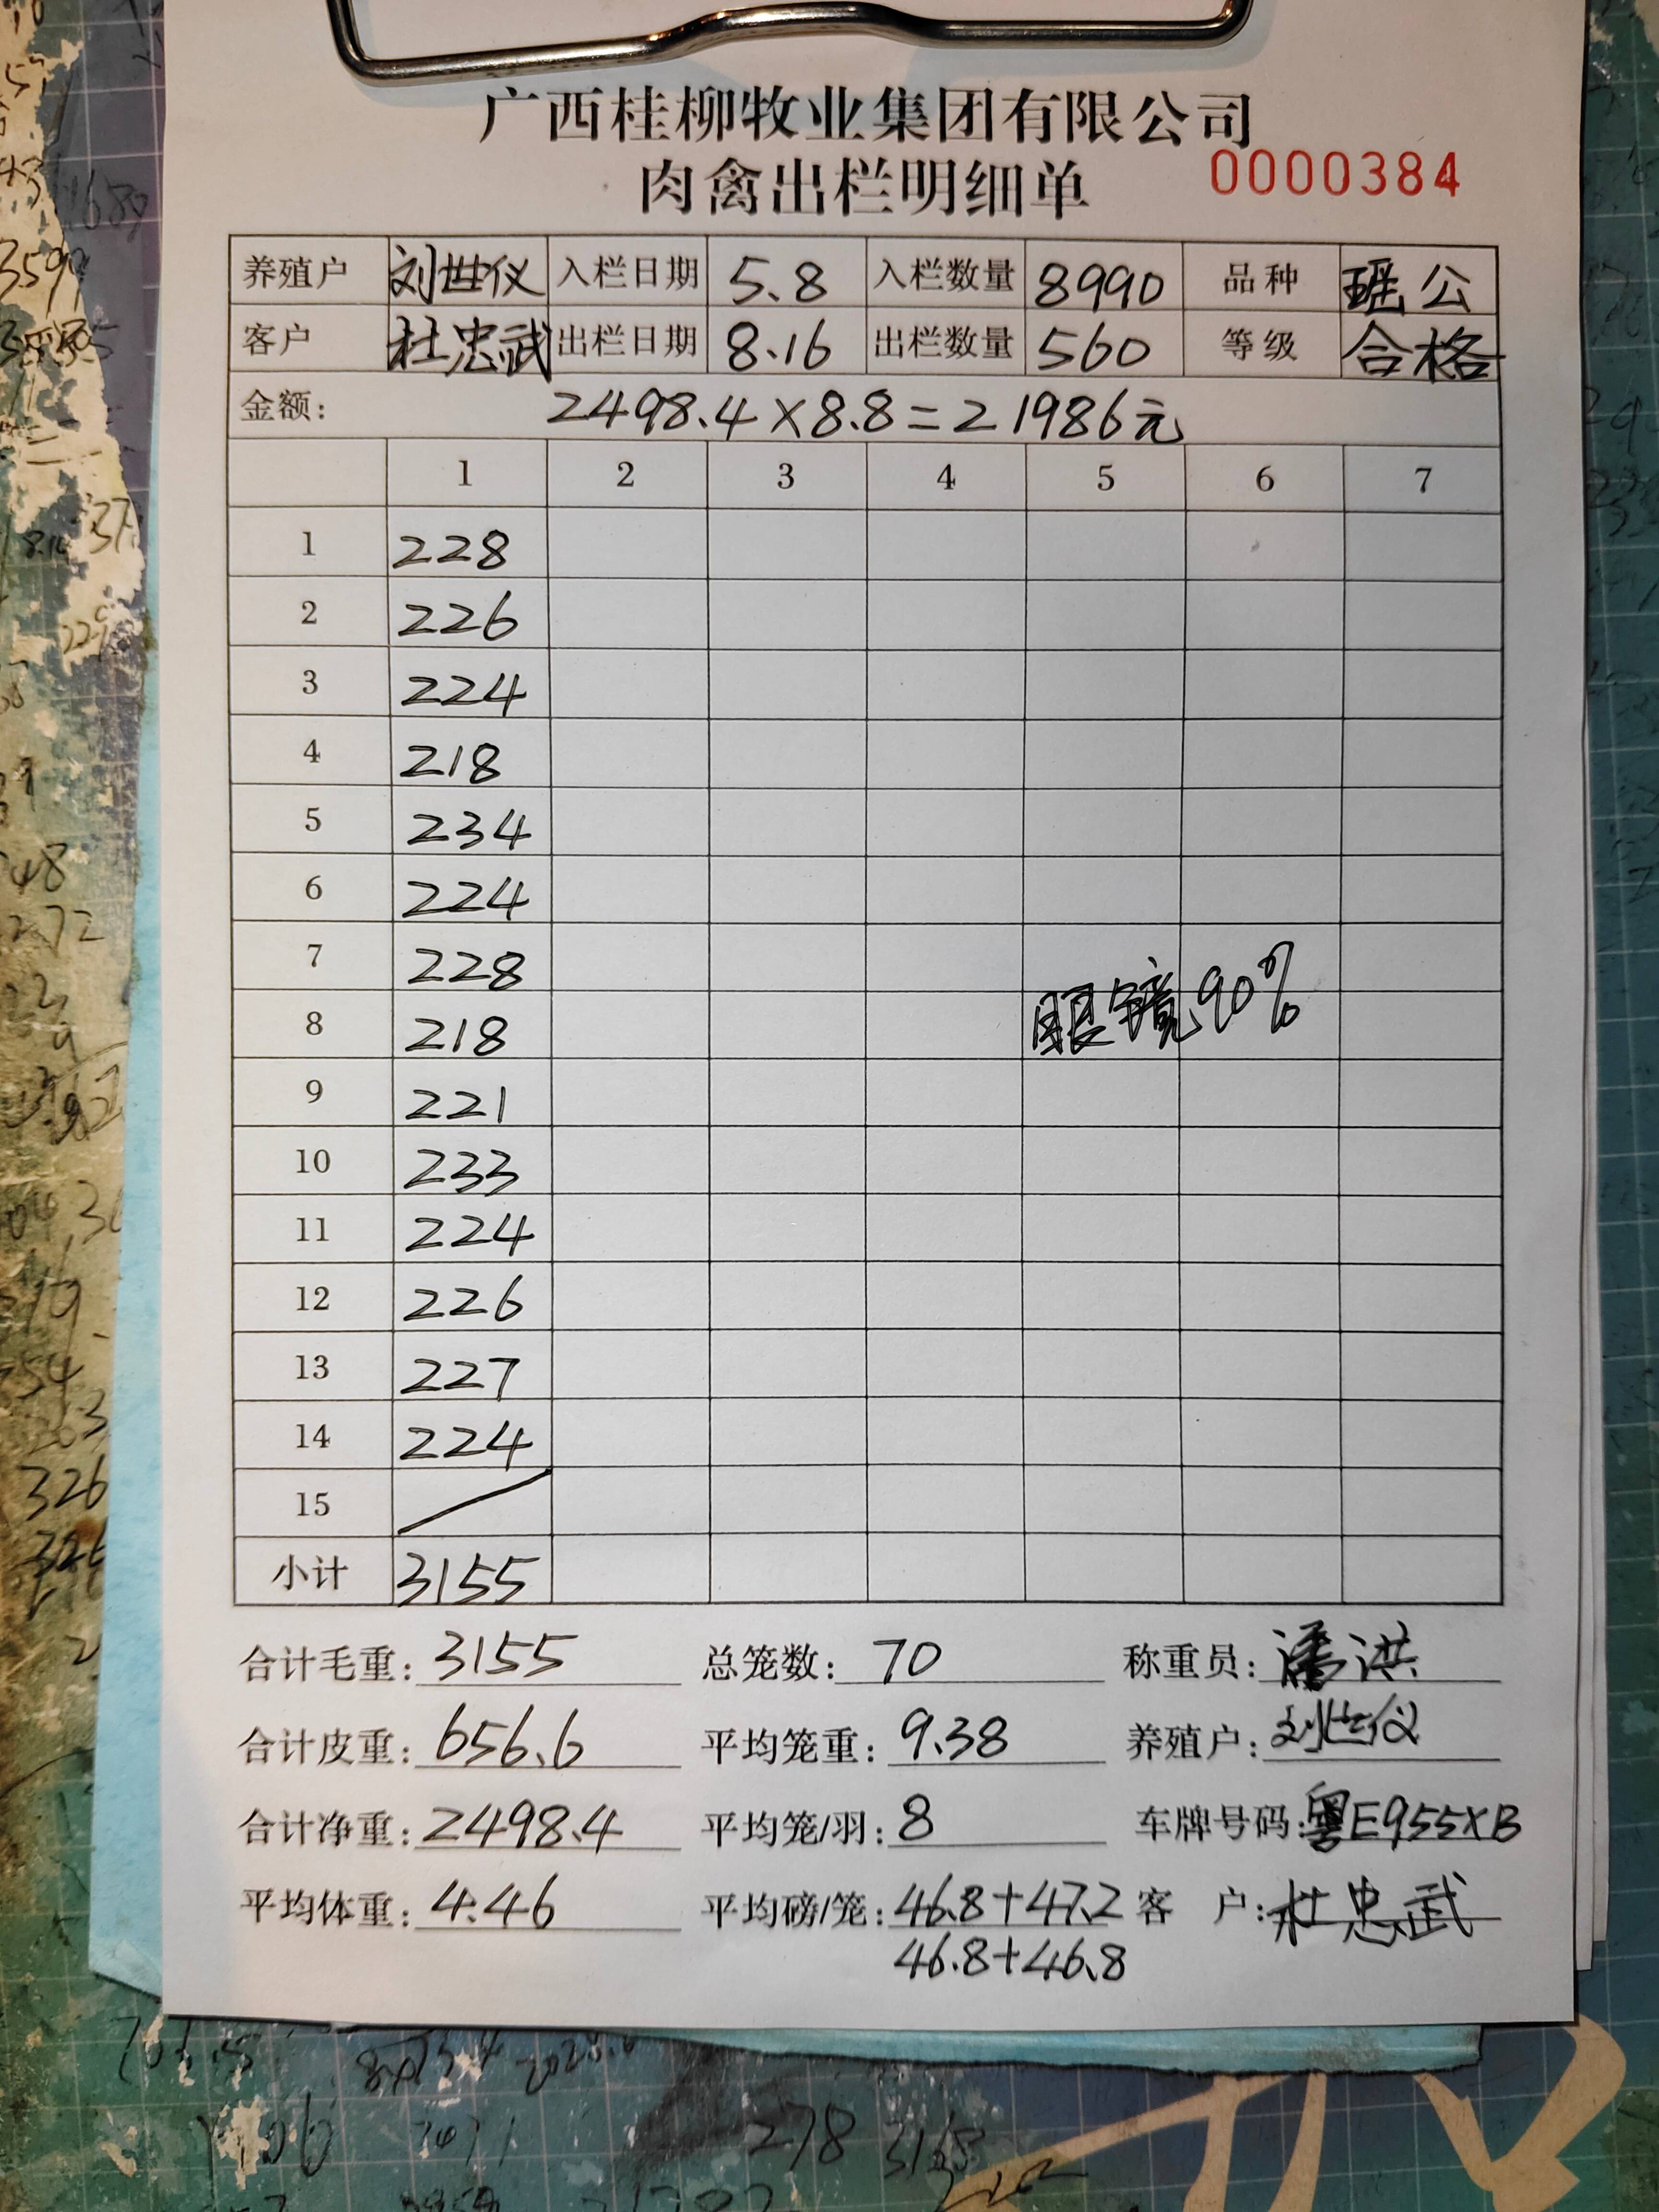 广西桂柳牧业集团有限公司
肉禽出栏明细单 0000384
养殖户 刘世仪 入栏日期 5.8 入栏数量 8990 品种 瑶公
客户 杜忠武 出栏日期 8.16 出栏数量 560 等级 合格
金额: 2498.4×8.8=21986元
1 2 3 4 5 6 7
1 228
2 226
3 224
4 218
5 234
6 224
7 228
眼镜90%
8 218
9 221
10 233
11 224
12 226
13 227
14 224
15
小计 3155
合计毛重: 3155 总笼数: 70 称重员: 潘洪
合计皮重: 656.6 平均笼重: 9.38 养殖户: 刘世仪
合计净重: 2498.4 平均笼/羽: 8 车牌号码: 粤E955XB
平均体重: 4.46 平均磅/笼: 46.8+47.2 客 户: 杜忠武
46.8+46.8